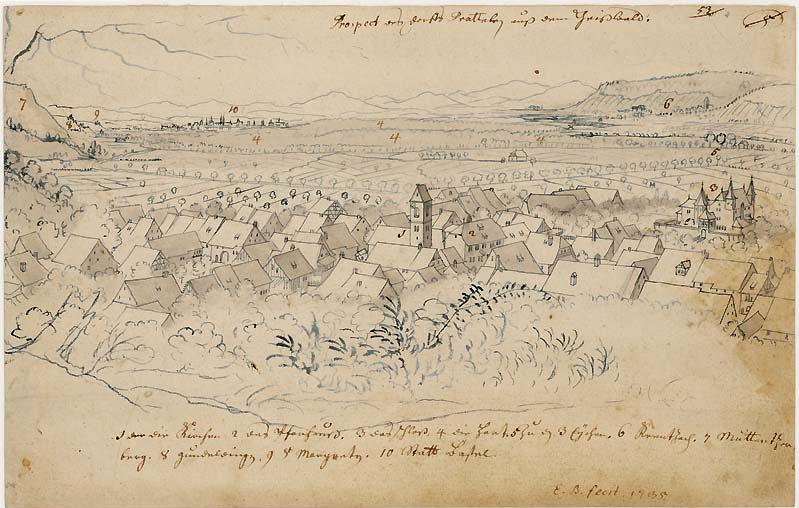 Prospect des dorfs Prattelen auß dem Geißwald.
53
7
8
9
10
6
4
4
4
4
5
3
1
2
1 die Kirchen 2 das Pfarhauß. 3 das schloß. 4 die Hart. 5 zu den 3 Eychen. 6 Krentzach. 7 Muttentzer
berg. 8 gundeldingen. 9 S Margreten. 10 Statt Basel.
E. B. fecit. 1735.